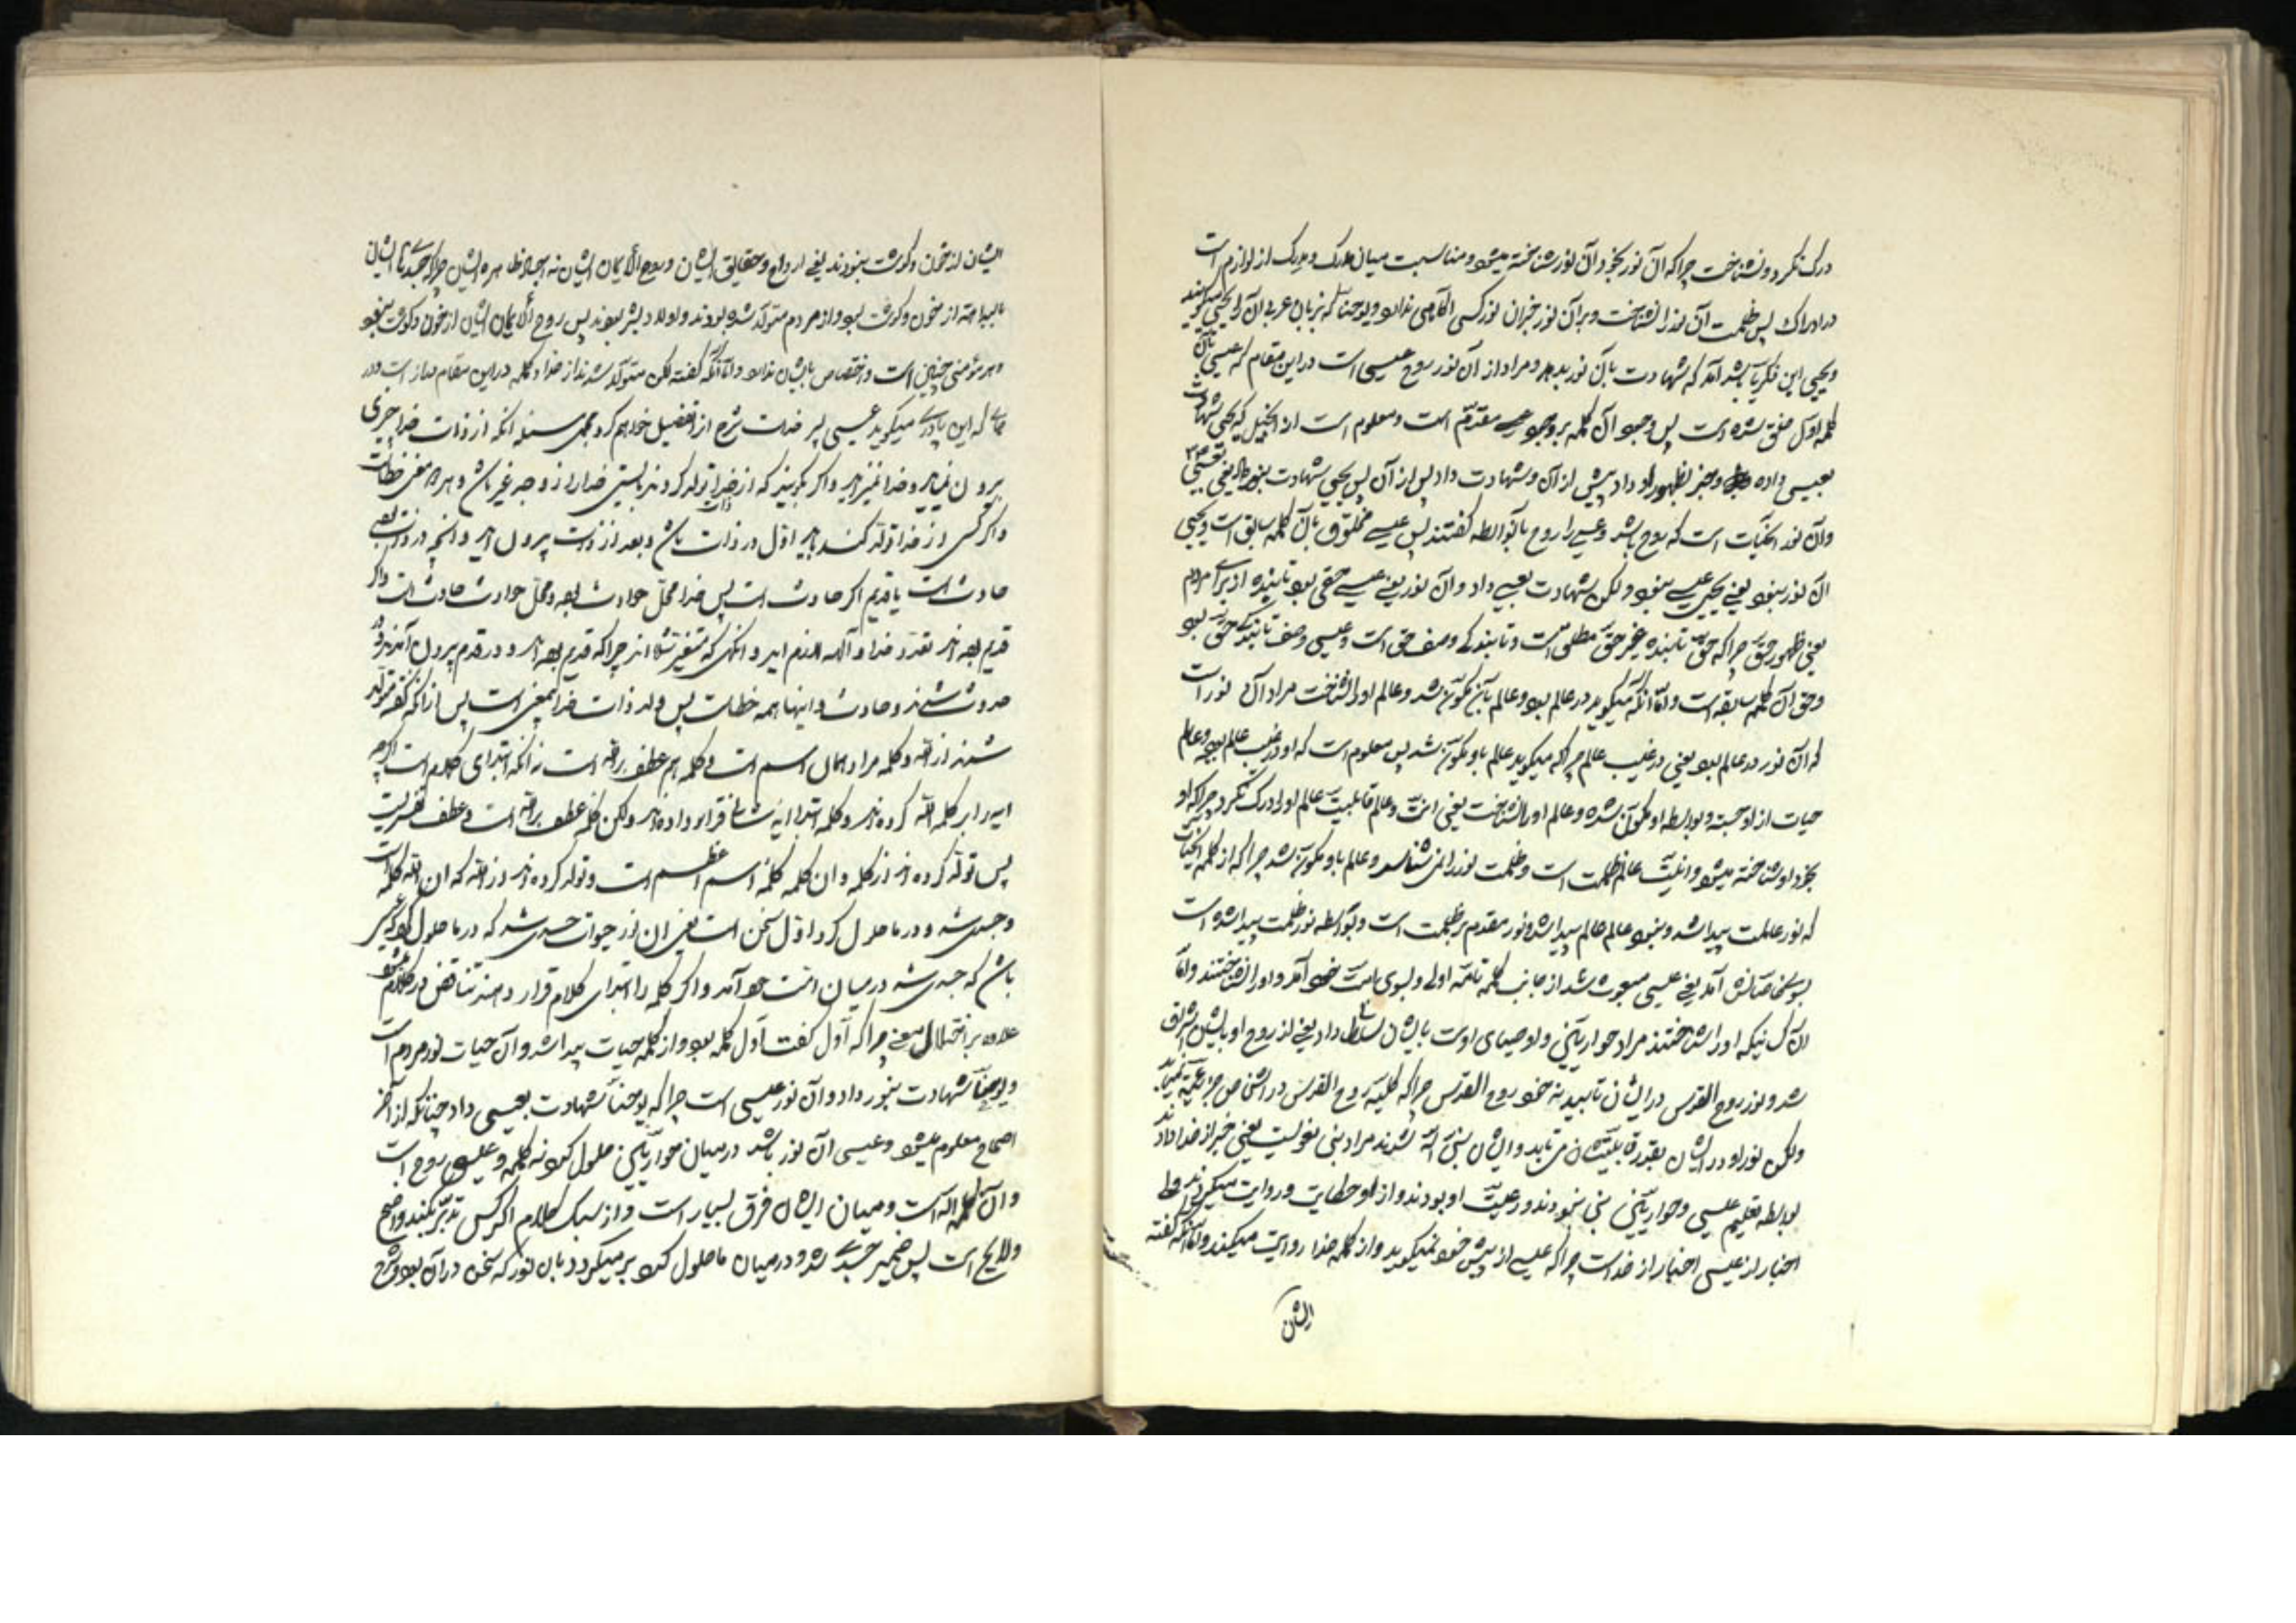 درک نکرد و نشناخت چرا که آن نور بخود آن نور شناخته میشود و مناسبت میان مدرک و مدرک از لوازم است
در ادراک پس ظلمت آن نور را نشناخت و بر آن نور خبران نور کسی آگاهی ندارد و یوحنا که بزبان عربی آن را یحیی میگویند
و یحیی ابن ذکریا باشد آمد که شهادت بآن نور بدهد و مراد از آن نور روح عیسی است در این مقام که عیسی بآن
کلمه اول خلق شده است پس وجود آن کلمه بر وجود عیسی مقدم است و معلوم است از انجیل که یحیی شهادت
بعیسی داده و خبر بظهور او داد پیش از آن و شهادت داد پس از آن پس یحیی شهادت بنور داد یعنی بعیسی
و آن نور الحیات است که روح باشد و عیسی را روح بآنواسطه گفتند پس عیسی مخلوق بآن کلمه سابق است و یحیی
آن نور نبود یعنی یحیی عیسی نبود و لکن شهادت بعیسی داد و آن نور یعنی عیسی حقی بود تابنده از برای مردم
یعنی ظهور حق چرا که حق تابنده غیر حق مطلق است و تابندگی وصف حق است و عیسی وصف تابندگی حق بود
و حق آن کلمه سابقه است و اما آنکه میگوید در عالم بود و عالم بآن مکون شد و عالم او را نشناخت مراد آن نور است
که آن نور در عالم بود یعنی در غیب عالم چرا که میگوید عالم باو مکون شد پس معلوم است که او در غیب عالم بود و عالم
حیات از او جسته و بواسطه او مکون شده و عالم او را نشناخت یعنی انیت و عالم قابلیت عالم او را درک نکرد چرا که او
بخود او شناخته میشود و انیت عالم ظلمت است و ظلمت نور را نمی شناسد و عالم باو مکون شد چرا که از کلمه الحیات
که نور عالمست پیدا شد و بنور عالم عالم پیدا شد و نور مقدم بر ظلمت است و بواسطه نور ظلمت پیدا شده است
بسوی خاصانش آمد یعنی عیسی مبعوث شد از جانب کلمه تامه اولی و بسوی امت خود آمد و او را نشناختند و اما
آن کسانیکه او را شناختند مراد حواریین و اوصیای اوست بایشان تسلط داد یعنی از روح او بایشان اشراق
شد و نور روح القدس در ایشان تابید نه خود روح القدس چرا که کلیه روح القدس در اشخاص جزئیه نمیتابد
ولکن نور او در ایشان بقدر قابلیتشان می تابد و ایشان بنی الله شدند مراد بنی نبوتیست یعنی خبر از خدا دادند
بواسطه تعلیم عیسی و حواریین نبی نبودند و رعیت او بودند و از او حکایت و روایت میکردند و لی
اخبار از عیسی اخبار از خداست چرا که عیسی از پیش خود نمیگوید و از کلمه خدا روایت میکند و اما آنکه گفته
ایشان
ایشان از خون و گوشت نبودند یعنی ارواح و حقایق ایشان و روح الایمان ایشان نه اجساد ظاهره ایشان چرا که جسدهای ایشان
بالبداهه از خون و گوشت بود و از مردم متولد شده بودند و اولاد بشر بودند پس روح الایمان ایشان از خون و گوشت نبود
و هر مؤمنی چنین است و اختصاص بایشان ندارد و اما آنکه گفته لکن متولد شدند از خدا و کلمه در این مقام مجاز است و در
جائی که این پادری میگوید عیسی پسر خداست شرح از تفصیل خواهم کرد مجمل مسئله آنکه از ذات خدا چیزی
بیرون نمیآید و خدا نمیزاید و اگر بگویند که از خدا تولد کردند بایستی خدا را زوجه غیر باشد و همه معنی خطاست
و اگر کسی از خدا تولد کند باید اول در ذات باشد و بعد از ذات بیرون آید و آنچه در ذات بود
حادث است یا قدیم اگر حادث است پس خدا محل حوادث بود و محل حوادث حادث است و اگر
قدیم بوده‌اند تعدد خدا و آلهه لازم آید و آنگهی که متغیر شده‌اند چرا که قدیم بوده‌اند و در قدم بیرون آمدند و
حدوث شدند و حادث و اینها همه خطاست پس ولد ذات خدا بیمعنی است پس از آنکه گفته متولد
شدند از الله و کلمه مراد همان اسم است و کلمه هم عطف بر الله است نه آنکه ابتدای کلام است اگر چه
پس تولد کرده‌اند از کلمه و آن کلمه کلمه اسم اعظم است و تولد کرده‌اند از الله که آن الله کلمه است
و جسد شد و در ما حلول کرد اول سخن است یعنی آن نور حیوات جسد شد که در ما حلول کرد که عیسی
باشد که جسد شد در میان امت خود آمد و اگر کلمه را ابتدای کلام قرار دهند تناقض در کلام میشود
علاوه بر اختلال معنی چرا که اول گفت اول کلمه بود و از کلمه حیات پیدا شد و آن حیات نور مردم است
و یوحنا شهادت بنور داد و آن نور عیسی است چرا که یوحنا شهادت بعیسی داد چنانکه از آخر
اصحاح معلوم میشود و عیسی آن نور باشد در میان حواریین حلول کرد نه کلمه و عیسی روح است
و آن کلمه اله است و میان ایشان فرق بسیار است و از سبک کلام اگر کس تدبر بکند واضح
و لایح است پس ضمیر جسد شد و در میان ما حلول کرد بر میگردد بآن نور که سخن در آن بود و شرح